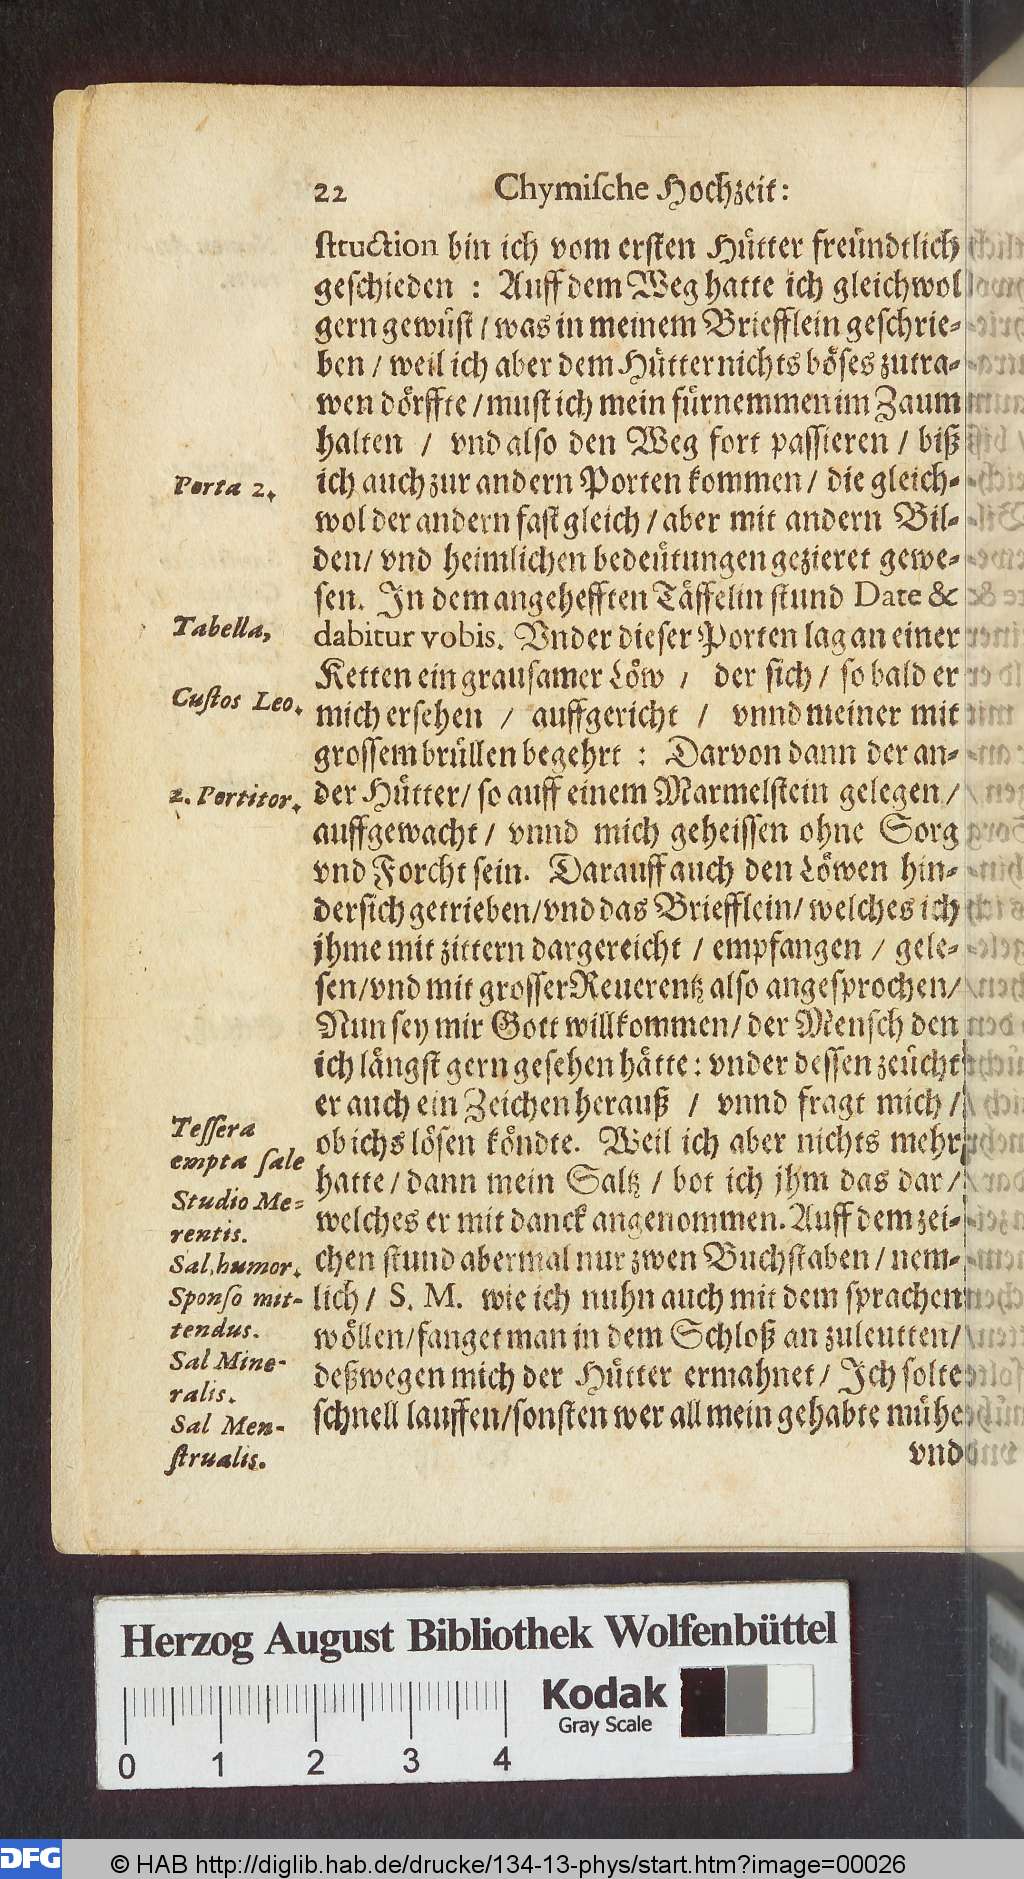 22 Chymiſche Hochzeit:
ſtruction bin ich vom erſten Hütter freündtlich
geſchieden : Auff dem Weg hatte ich gleichwol
gern gewüſt / was in meinem Briefflein geſchrie-
ben / weil ich aber dem Hütter nichts böſes zutra-
wen dörffte / muſt ich mein fürnemmen im Zaum
halten / vnd alſo den Weg fort paſſieren / biß
Porta 2.
ich auch zur andern Porten kommen / die gleich-
wol der andern faſt gleich / aber mit andern Bil-
den / vnd heimlichen bedeütungen gezieret gewe-
ſen. In dem angehefften Täffelin ſtund Date &
Tabella,
dabitur vobis. Vnder dieſer Porten lag an einer
Ketten ein grauſamer Löw / der ſich / ſo bald er
Cuſtos Leo.
mich erſehen / auffgericht / vnnd meiner mit
groſſem brüllen begehrt : Darvon dann der an-
2. Portitor.
der Hütter / ſo auff einem Marmelſtein gelegen /
auffgewacht / vnnd mich geheiſſen ohne Sorg
vnd Forcht ſein. Darauff auch den Löwen hin-
derſich getrieben / vnd das Briefflein / welches ich
jhme mit zittern dargereicht / empfangen / gele-
ſen / vnd mit groſſer Reuerentz alſo angeſprochen /
Nun ſey mir Gott willkommen / der Menſch den
ich längſt gern geſehen hätte : vnder deſſen zeücht
er auch ein Zeichen herauß / vnnd fragt mich /
Teſſera
ob ichs löſen köndte. Weil ich aber nichts mehr
empta ſale
hatte / dann mein Saltz / bot ich jhm das dar /
Studio Me-
welches er mit danck angenommen. Auff dem zei-
rentis.
chen ſtund abermal nur zwen Buchſtaben / nem-
Sal humor.
lich / S. M. wie ich nuhn auch mit dem ſprachen
Sponſo mit-
tendus.
wöllen / fanget man in dem Schloß an zuleutten /
Sal Mine-
deßwegen mich der Hütter ermahnet / Ich ſolte
ralis.
ſchnell lauffen / ſonſten wer all mein gehabte mühe
Sal Men-
ſtrualis.
vnd
Herzog August Bibliothek Wolfenbüttel
Kodak
Gray Scale
0 1 2 3 4
DFG © HAB http://diglib.hab.de/drucke/134-13-phys/start.htm?image=00026